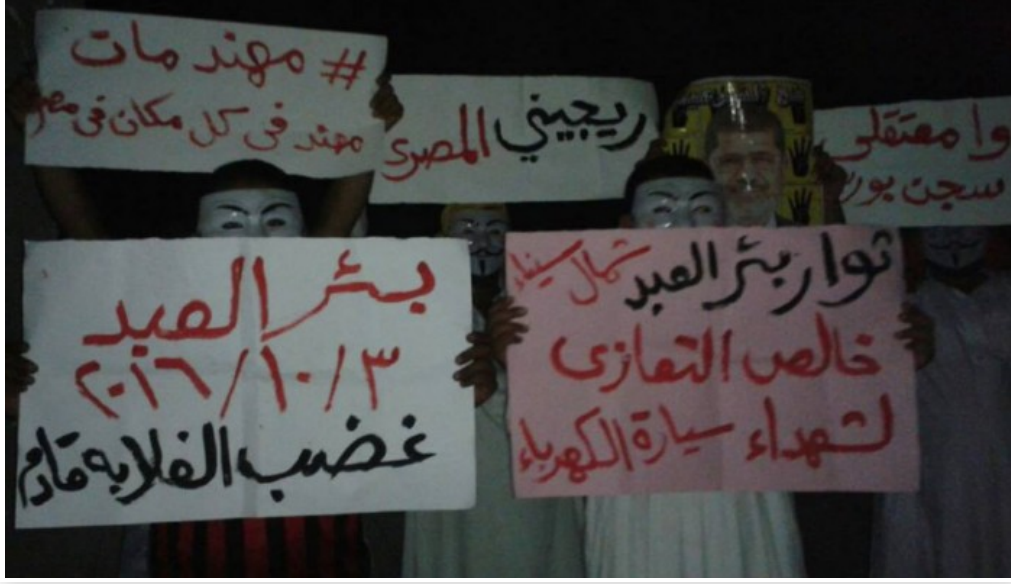 # مهند مات
مهند فى كل مكان فى مصر
ريجيني المصرى
وا معتقلى
سجن بور
بئر العبد
٢٠١٦/١٠/٣
غضب الغلابه قادم
ثوار بئر العبد شمال سيناء
خالص التعازى
لشهداء سيارة الكهرباء